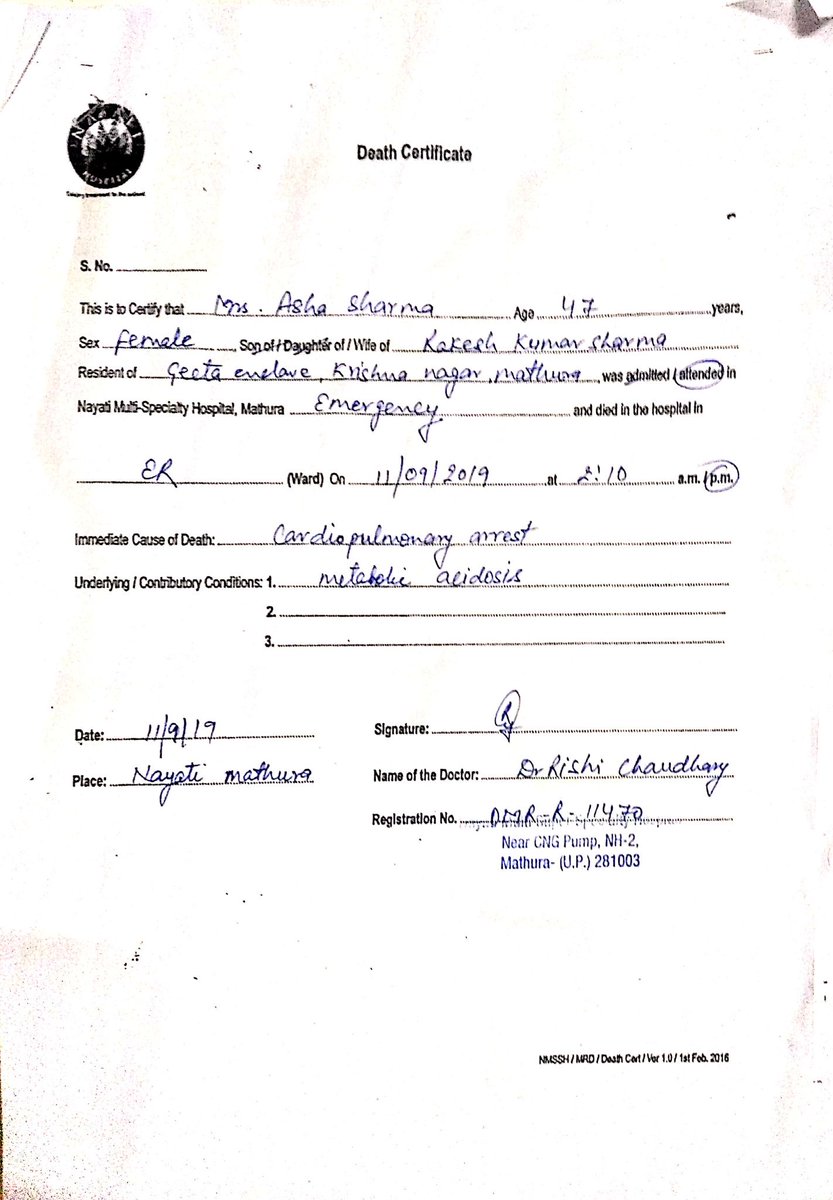 NAYATI
HOSPITAL
Death Certificate
S. No. 
This is to Certify that Mrs. Asha Sharma Age 47 years,
Sex female Son of / Daughter of / Wife of Rakesh Kumar Sharma
Resident of Geeta enclave, Krishna nagar, mathura was admitted / attended in
Nayati Multi-Specialty Hospital, Mathura Emergency and died in the hospital in
ER (Ward) On 11/09/2019 at 2:10 a.m. / p.m.
Immediate Cause of Death: Cardiopulmonary arrest
Underlying / Contributory Conditions: 1. metabolic acidosis
2.
3.
Date: 11/9/19
Signature:
Place: Nayati mathura
Name of the Doctor: Dr Rishi Chaudhary
Registration No. DMR-R-11470
Near CNG Pump, NH-2,
Mathura- (U.P.) 281003
NMSSH / MRD / Death Cert / Ver 1.0 / 1st Feb. 2016